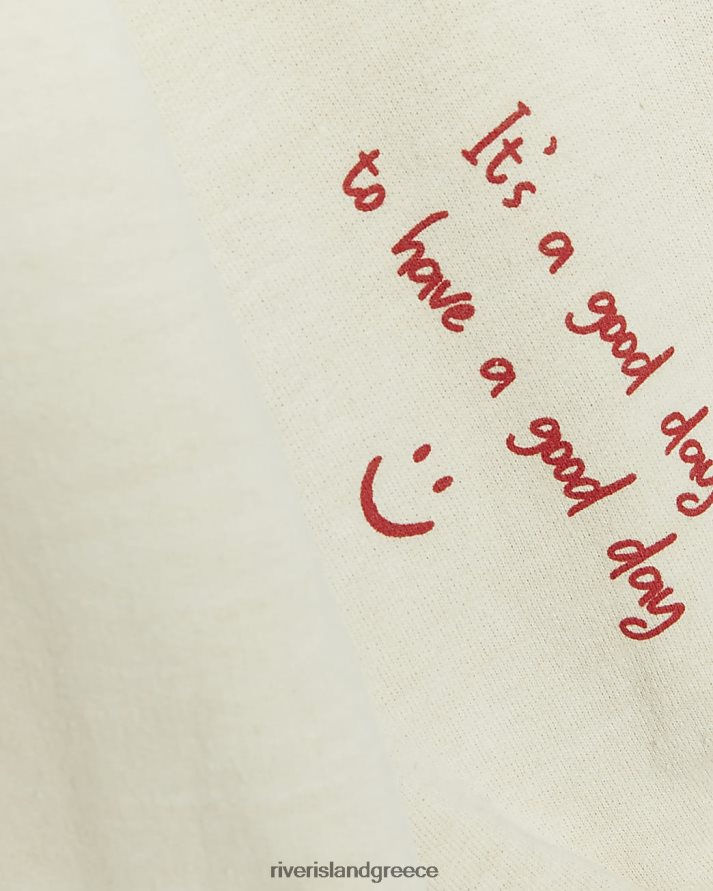 It's a good day
to have a good day
riverislandgreece